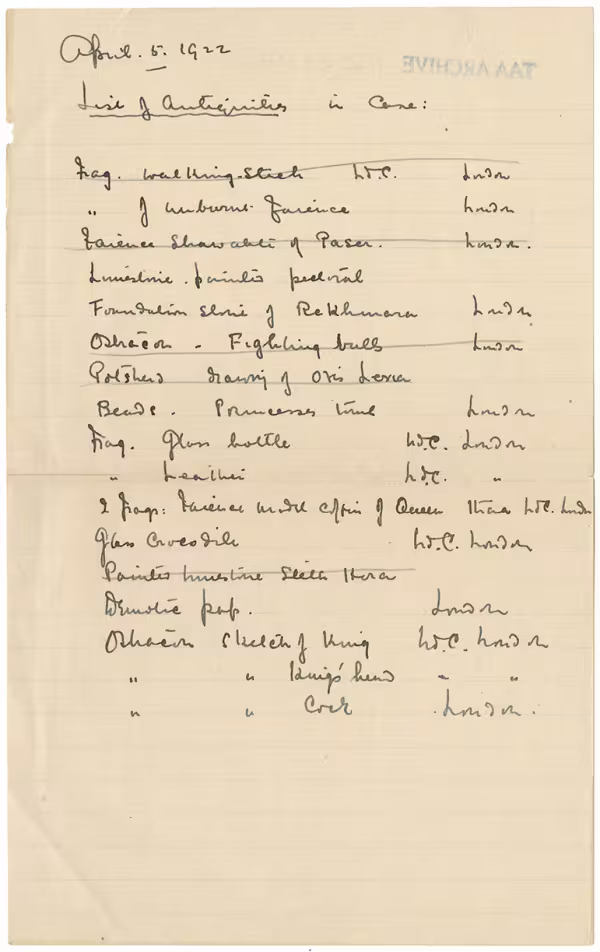 April. 5. 1922
TAA ARCHIVE
List of Antiquities in Case:
Frag. walking-stick Ld.C. London
" of unburnt faience London
Faience Shawabti of Paser. London.
Limestone. painted pectoral
Foundation stone of Rekhmara London
Ostracon - Fighting bulls London
Potsherd drawing of Osis
Beads. Princesses tomb London
Frag. Glass bottle Ld.C. London
" Leather Ld.C. "
2 Frags: Faience model coffin of Queen Ld.C. London
Glass Crocodile Ld.C. London
Painted limestone
Demotic pap. London
Ostracon Sketch of King Ld.C. London
" " King's head " "
" " Cock London.